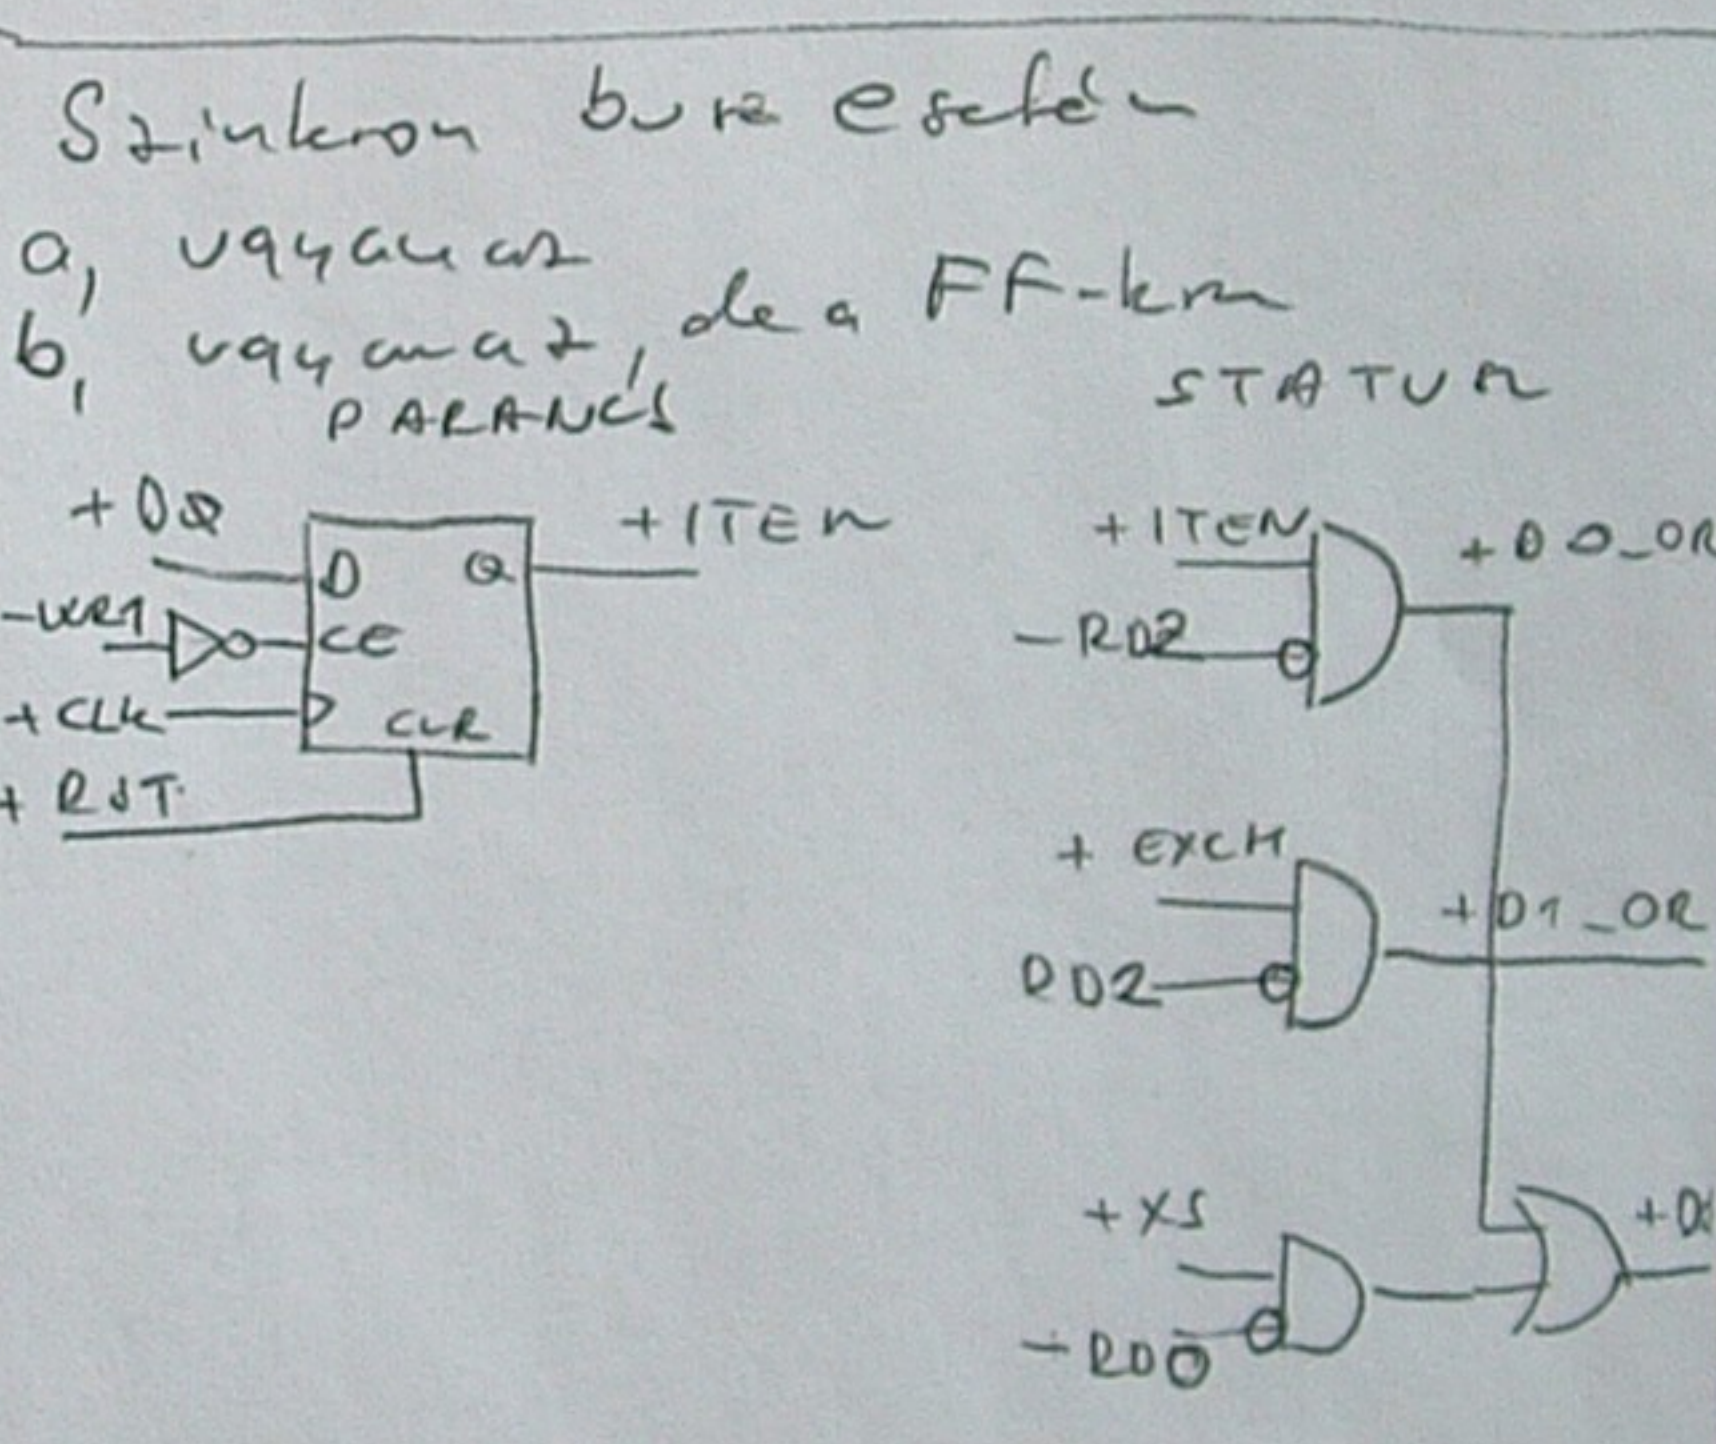 Szinkron busz esetén
a, ugyanaz
b, ugyanaz, de a FF-km
PARANCS
STATUSZ
+D0
D Q
+ITEN
-WR1
CE
+CLK
CLR
+RST
+ITEN
+D0_OR
-RD2
+EXCH
+D1_OR
RD2
+XS
-RD0